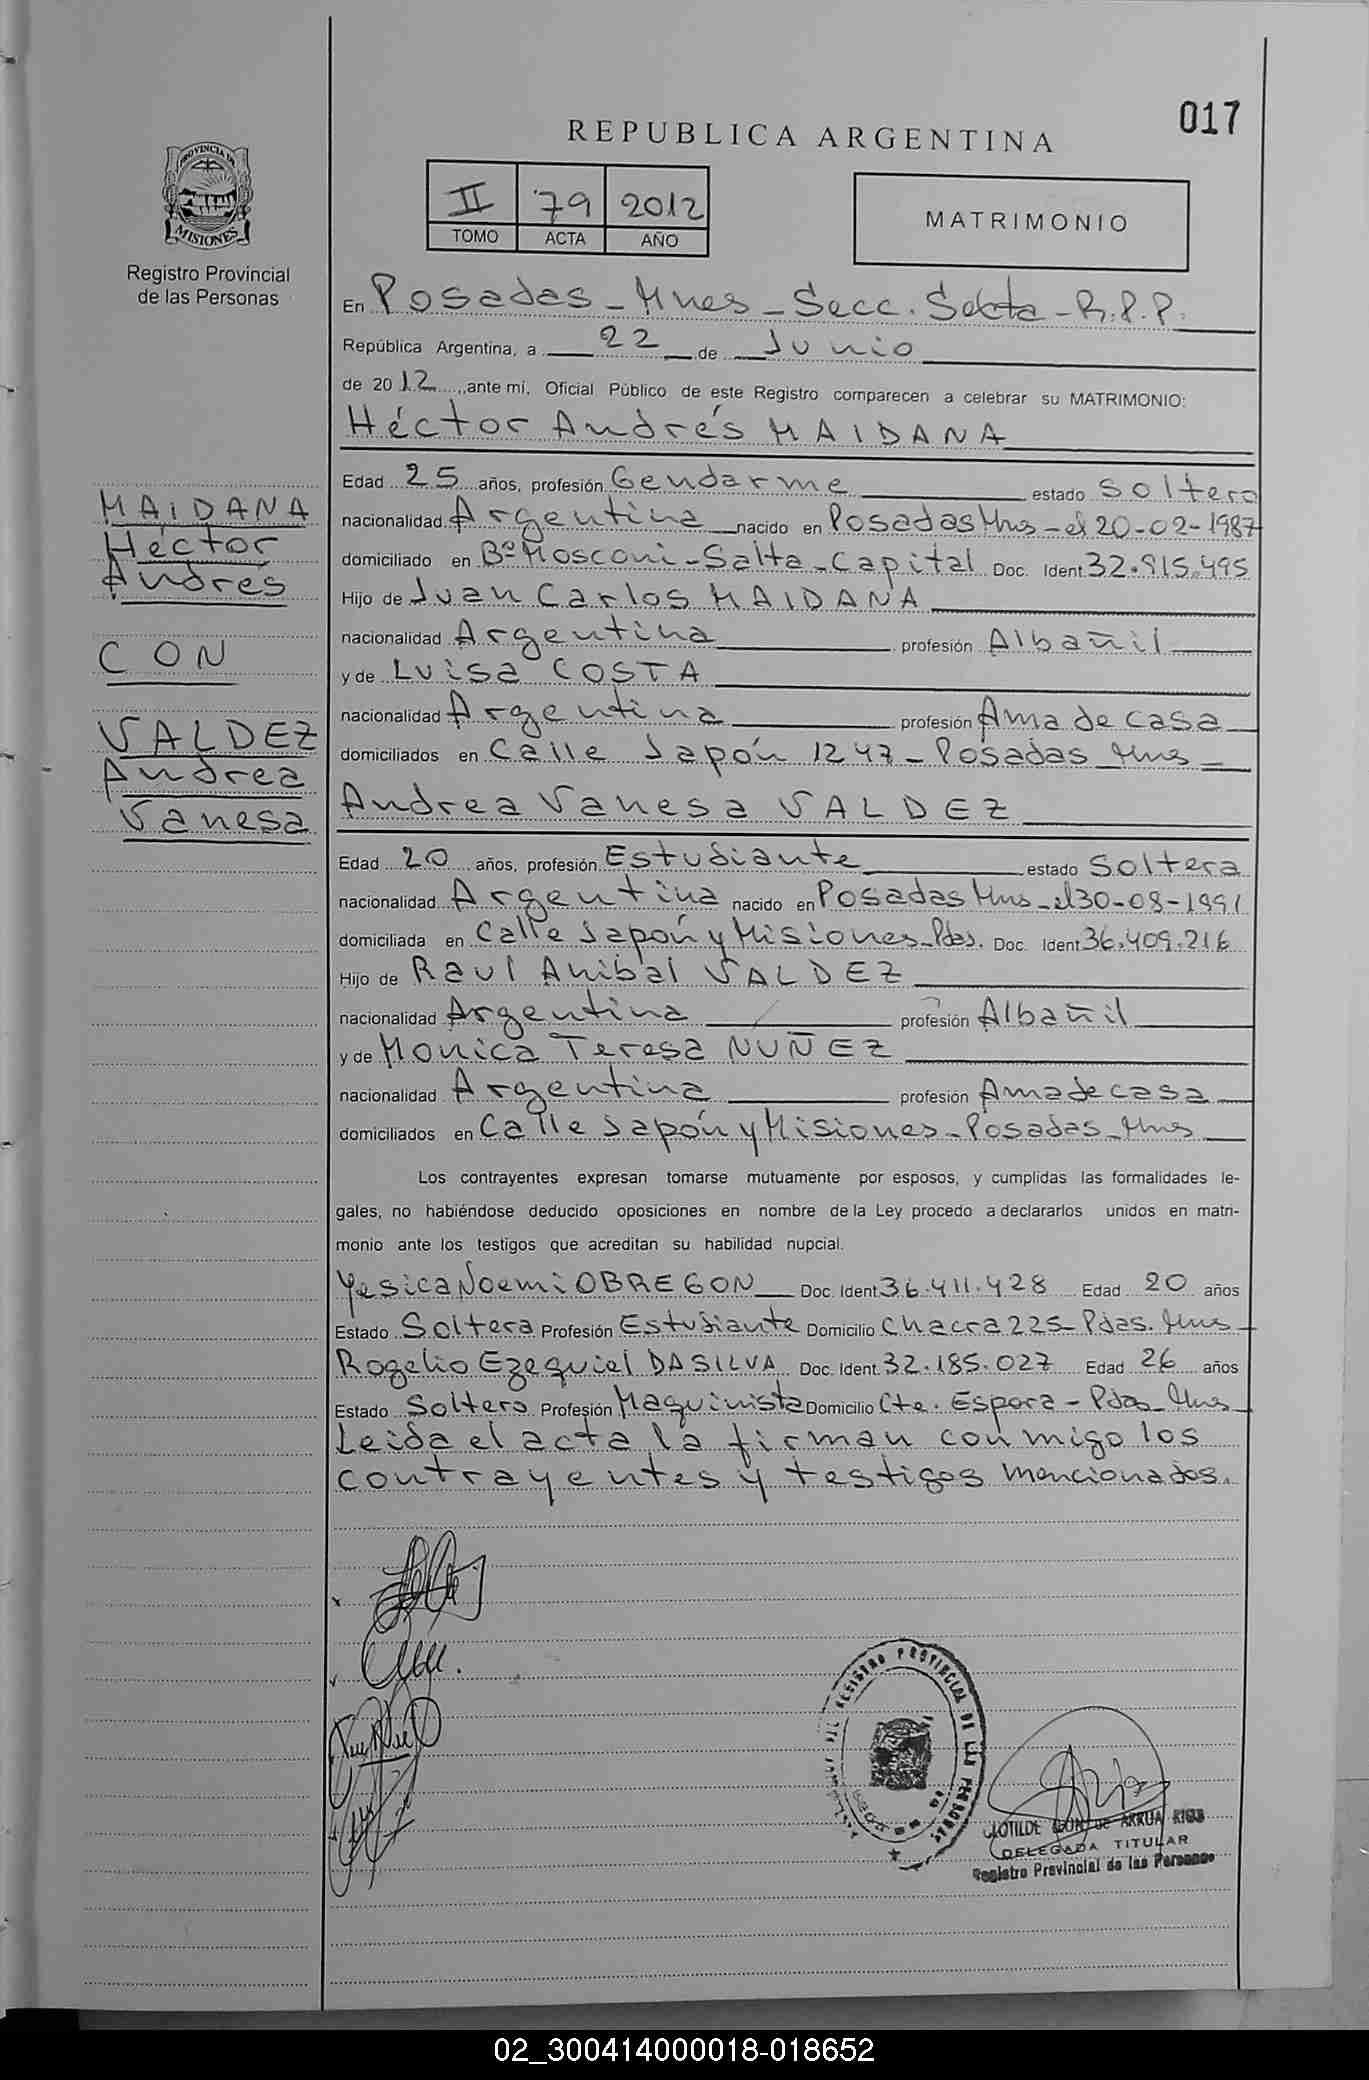 017
REPUBLICA ARGENTINA
II 79 2012
TOMO ACTA AÑO
MATRIMONIO
PROVINCIA DE
MISIONES
Registro Provincial
de las Personas
En Posadas - Mnes - Secc. Sexta - R.P.P.
República Argentina, a 22 de Junio
de 2012, ante mí, Oficial Público de este Registro comparecen a celebrar su MATRIMONIO:
Héctor Andrés MAIDANA
Edad 25 años, profesión Gendarme estado Soltero
nacionalidad Argentina nacido en Posadas Mns - el 20-02-1987
domiciliado en Bº Mosconi - Salta - Capital Doc. Ident 32.915.495
Hijo de Juan Carlos MAIDANA
nacionalidad Argentina profesión Albañil
y de Luisa COSTA
nacionalidad Argentina profesión Ama de casa
domiciliados en Calle Japón 1247 - Posadas Mns
MAIDANA
Héctor
Andrés
CON
VALDEZ
Andrea
Vanesa
Andrea Vanesa VALDEZ
Edad 20 años, profesión Estudiante estado Soltera
nacionalidad Argentina nacido en Posadas Mns - el 30-08-1991
domiciliada en Calle Japón y Misiones - Pdas. Doc. Ident 36.409.216
Hijo de Raul Anibal VALDEZ
nacionalidad Argentina profesión Albañil
y de Monica Teresa NUÑEZ
nacionalidad Argentina profesión Ama de casa
domiciliados en Calle Japón y Misiones - Posadas - Mns
Los contrayentes expresan tomarse mutuamente por esposos, y cumplidas las formalidades le-
gales, no habiéndose deducido oposiciones en nombre de la Ley procedo a declararlos unidos en matri-
monio ante los testigos que acreditan su habilidad nupcial.
Yesica Noemi OBREGON Doc. Ident 36.411.428 Edad 20 años
Estado Soltera Profesión Estudiante Domicilio Chacra 225 - Pdas. Mns
Rogelio Ezequiel DASILVA Doc. Ident. 32.185.027 Edad 26 años
Estado Soltero Profesión Maquinista Domicilio Cte. Espora - Pdas - Mns
Leida el acta la firman conmigo los
contrayentes y testigos mencionados.
REGISTRO PROVINCIAL DE LAS PERSONAS
CLOTILDE DE ARRUA RIOS
DELEGADA TITULAR
Registro Provincial de las Personas
02_300414000018-018652